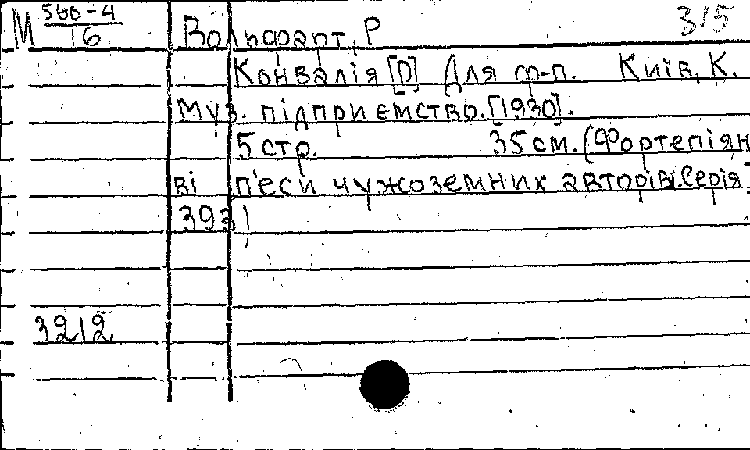 М 566-4/16 Вольфарт, Р 315
Конвалія [Р] Для ф-п. Київ, К.
муз. підприємство. [1930].
5 стр. 35 см. (Фортепіян
ві п'єси чужоземних авторів. Серія
393)
3212